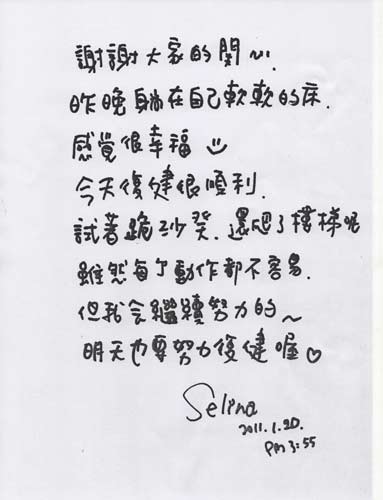 謝謝大家的關心.
昨晚躺在自己軟軟的床.
感覺很幸福
今天復健很順利.
試著跪沙發.還爬了樓梯呢
雖然每個動作都不容易.
但我会繼續努力的~
明天也要努力復健喔♡
Selina
2011.1.20.
PM 3:55